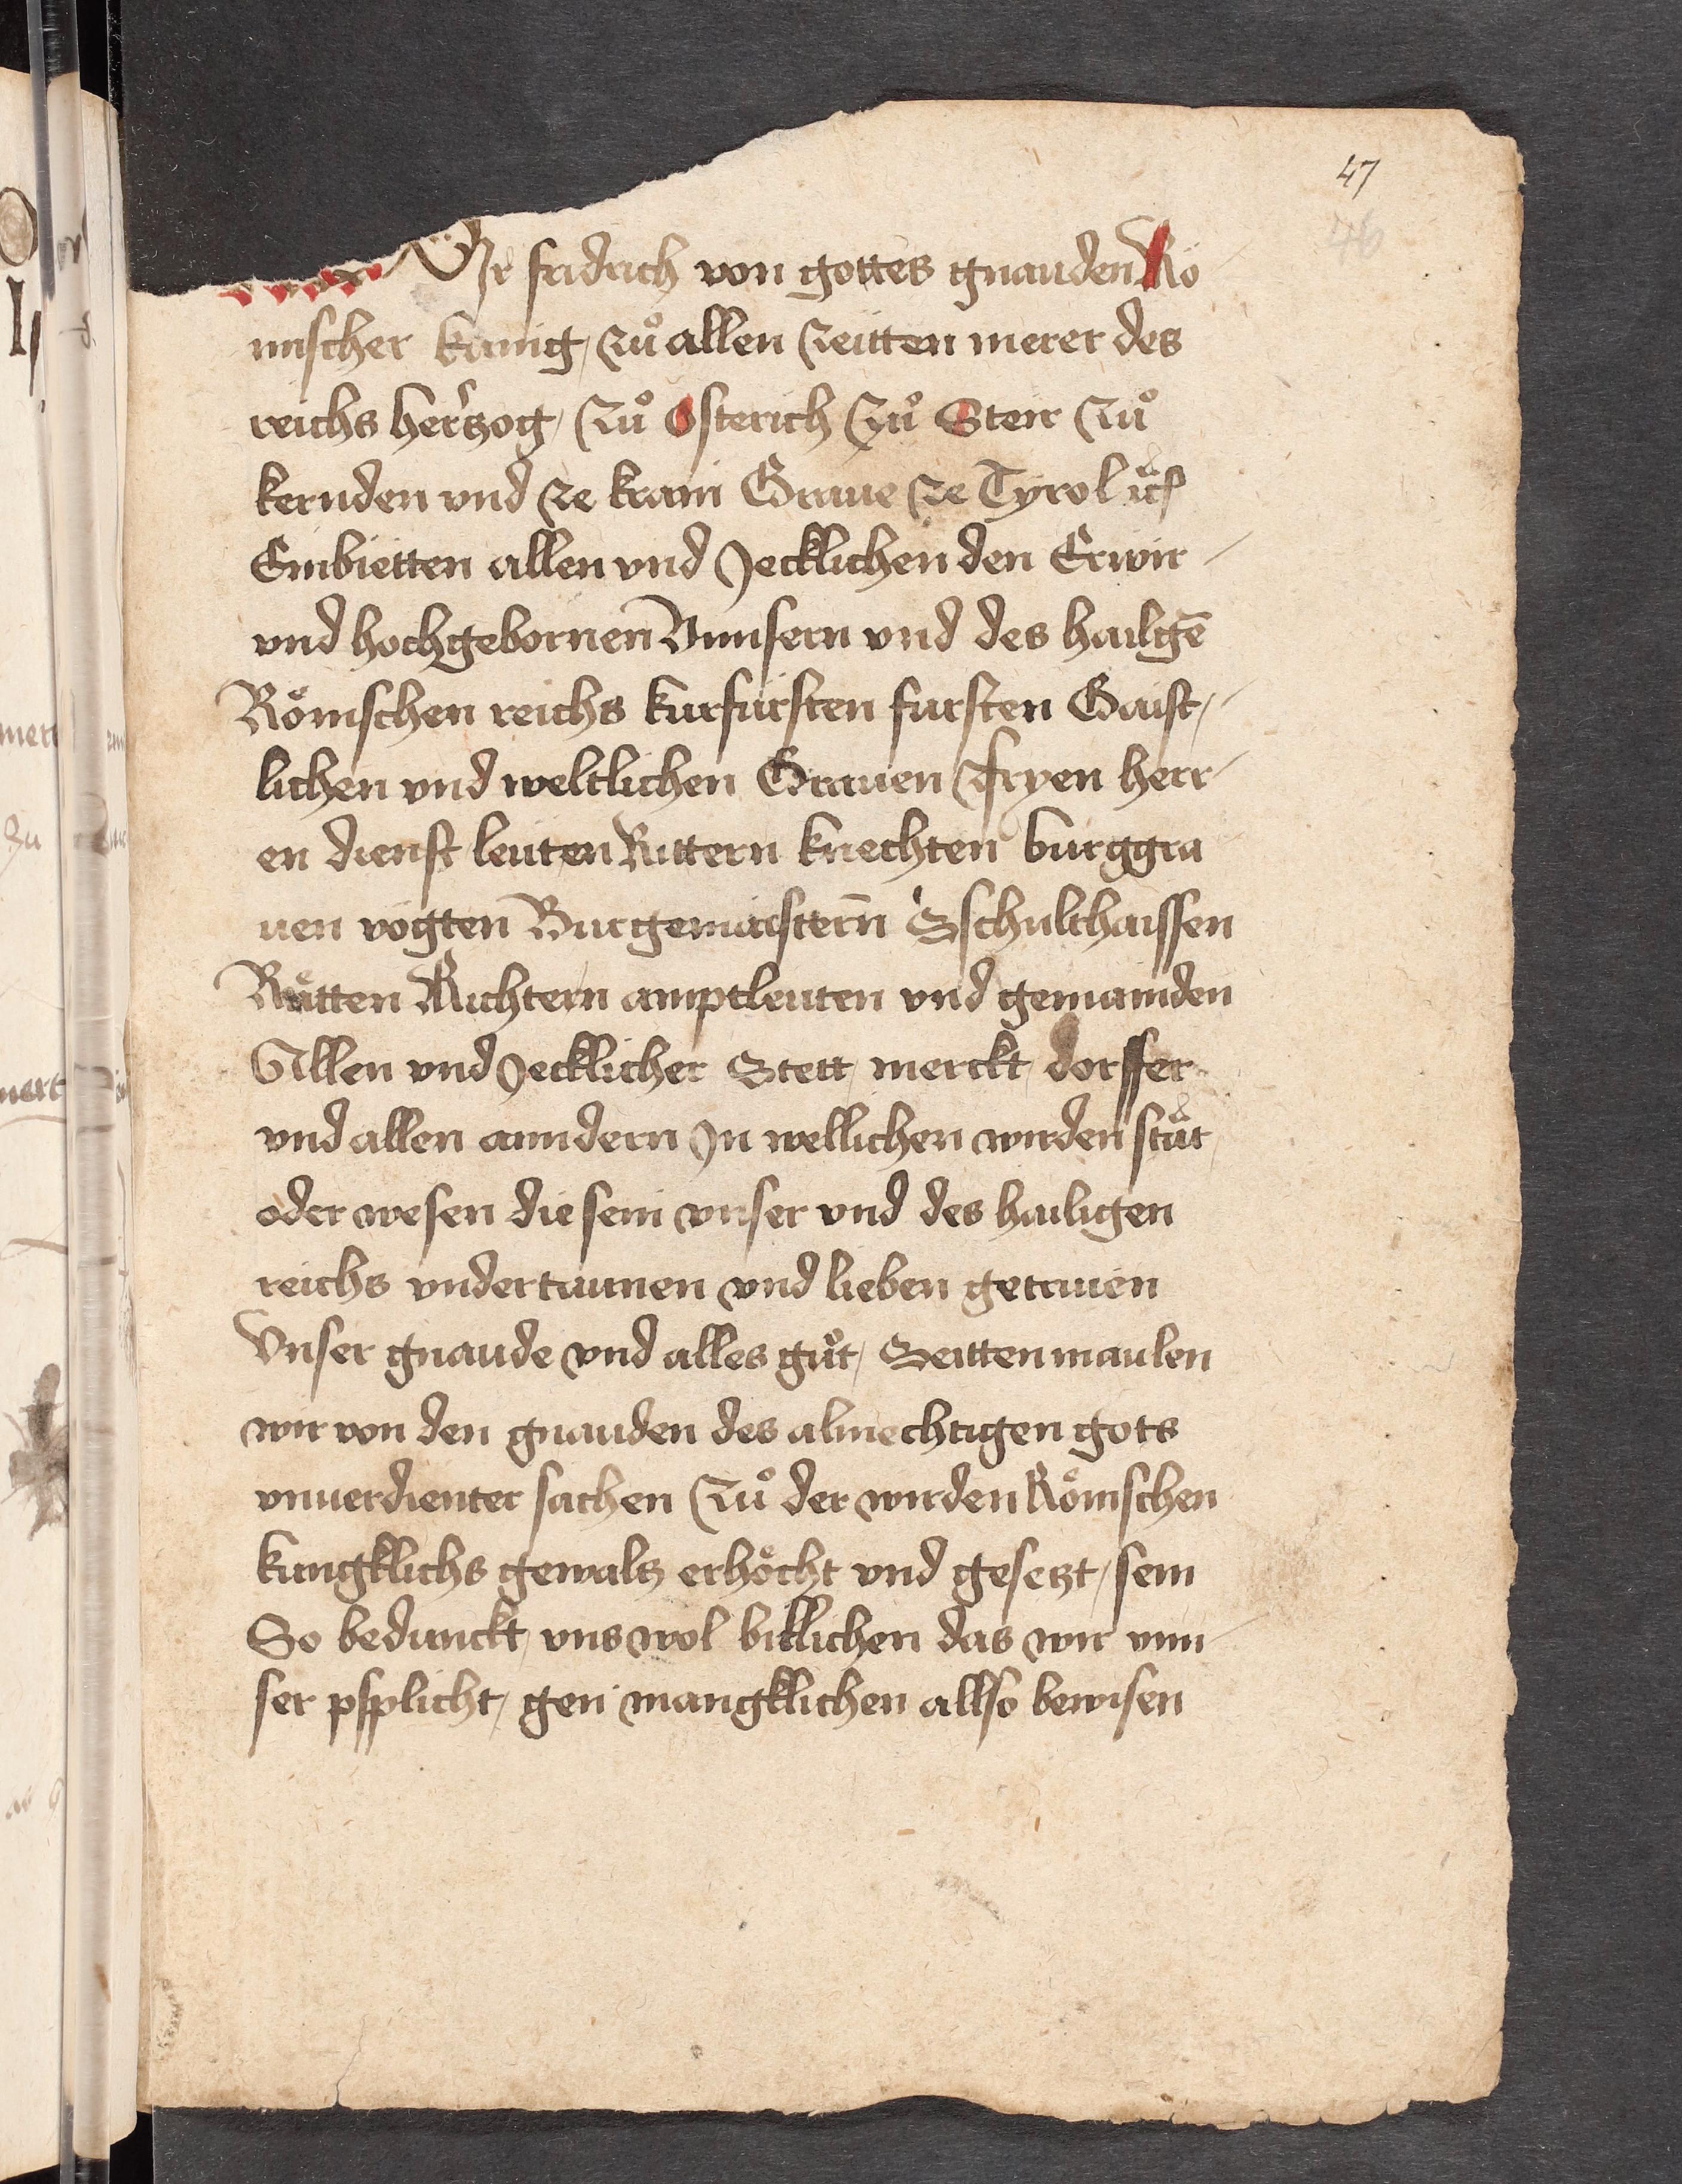 47
46
Wir fridrich von gottes gnauden Rö
mischer kunig, zuͦ allen zeitten merer des
reichs herzog, zuͦ Osterich zuͦ Steir zuͦ
kernden vnd ze krain Graue ze Tyrol
Embietten allen vnd Jecklichen den Erwir
vnd hochgebornen Vnnsern vnd des hailgē
Römschen reichs kurfürsten fursten Gaist,
lichen vnd weltlichen Grauen fryen herr
en dienst leuten Rittern knechten burggra
uen vögten Burgemaistern̄ Sschulthaissen
Rätten Richtern amptleuten vnd gemainden
Allen vnd Jecklicher Stett, merckt, dorffer
vnd allen anndern Jn wellichen wirden stät,
oder wesen die sein vnser vnd des hailigen
reichs vndertaunen vnd lieben getruien
Vnser gnaude vnd alles guͦt, Seittenmaulen
wir von den gnauden des almechtigen gots
vnuerdienter sachen zuͦ der wirden Römschen
kungklichs gewaltz erhöcht vnd gesetzt, sein
So bedunckt, vns wol billichen das wir vnn
ser pfplicht, gen mangklichen allso bewisen